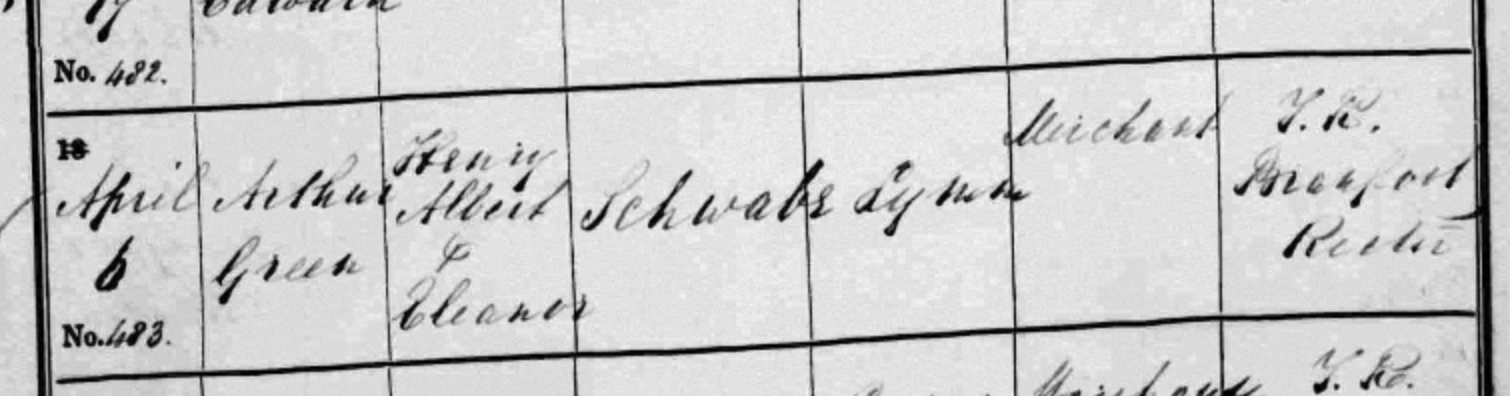 Edward
No. 482.
18
April
6
No. 483.
Arthur
Green
Henry
Albert
&
Eleanor
Schwabe
Lymm
Merchant
J. R.
Rector
J. R.